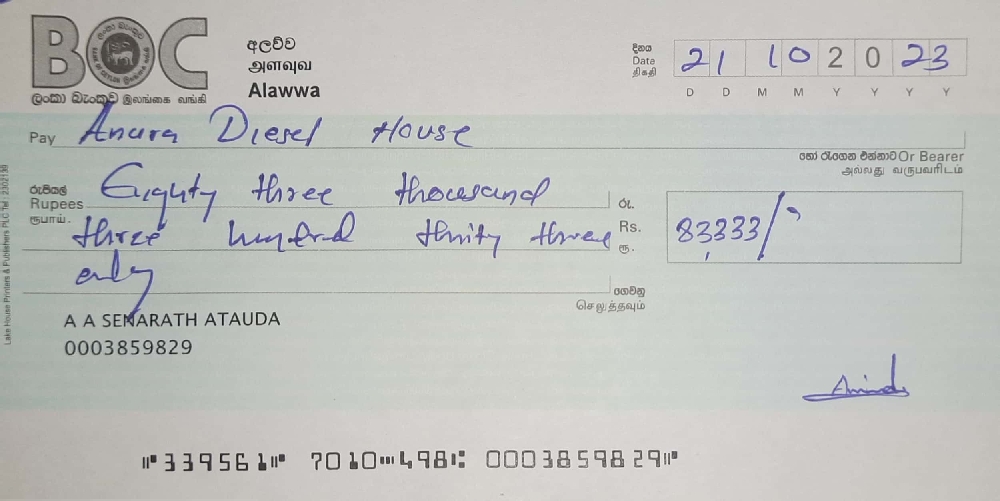 BOC
ලංකා බැංකුව இலங்கை வங்கி
අලව්ව
அளவுவ
Alawwa
දිනය
Date
திகதி
21 10 2023
D D M M Y Y Y Y
Pay Anura Diesel House
හෝ රැගෙන එන්නාට Or Bearer
அல்லது வருபவரிடம்
රුපියල්
Rupees
ரூபாய்.
Eighty three thousand
three hundred thrity three
only
රු.
Rs.
ரூ.
83,333/
ගෙවනු
செலுத்தவும்
A A SENARATH ATAUDA
0003859829
Lake House Printers & Publishers PLC Tel : 2302139
⑈339561⑈ 7010⑉498⑆ 0003859829⑈